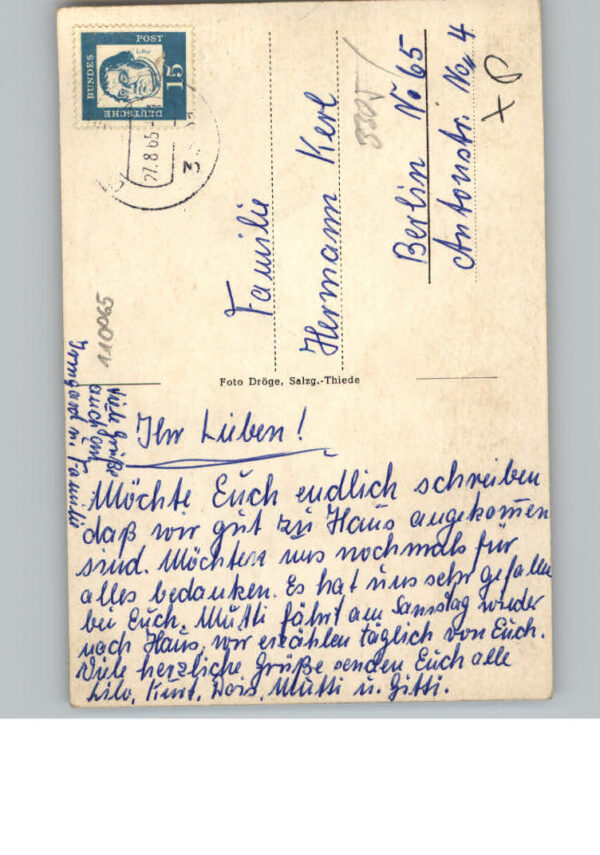 DEUTSCHE
BUNDES
POST
15
Luther
27.8.65
3
Familie
Hermann Kerl
Berlin No 65
Antonstr. No. 4
110065
Foto Dröge, Salzg.-Thiede
Viele Grüße
auch an
Irmgard u. Familie
Ihr Lieben!
Möchte Euch endlich schreiben
daß wir gut zu Haus angekommen
sind. Möchten uns nochmals für
alles bedanken. Es hat uns sehr gefallen
bei Euch. Mutti fährt am Samstag wieder
nach Haus, wir erzählen täglich von Euch.
Viele herzliche Grüße senden Euch alle
Lilo, Kurt, Doris, Mutti u. Gitti.